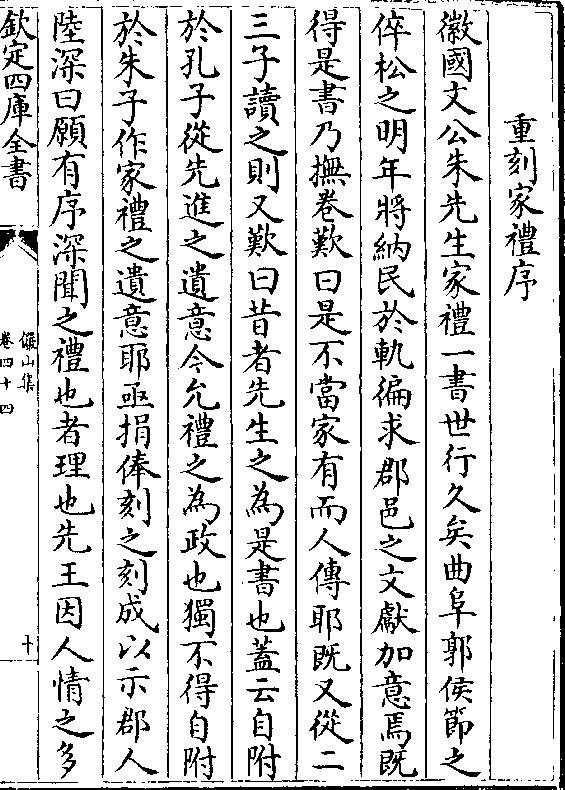 重刻家禮序
徽國文公朱先生家禮一書世行久矣曲阜郭侯節之
倅松之明年將納民於軌徧求郡邑之文獻加意焉既
得是書乃撫卷歎曰是不當家有而人傳耶既又從二
三子讀之則又歎曰昔者先生之為是書也蓋云自附
於孔子從先進之遺意今允禮之為政也獨不得自附
於朱子作家禮之遺意耶亟捐俸刻之刻成以示郡人
陸深曰願有序深聞之禮也者理也先王因人情之多
欽定四庫全書
儼山集
卷四十四
十